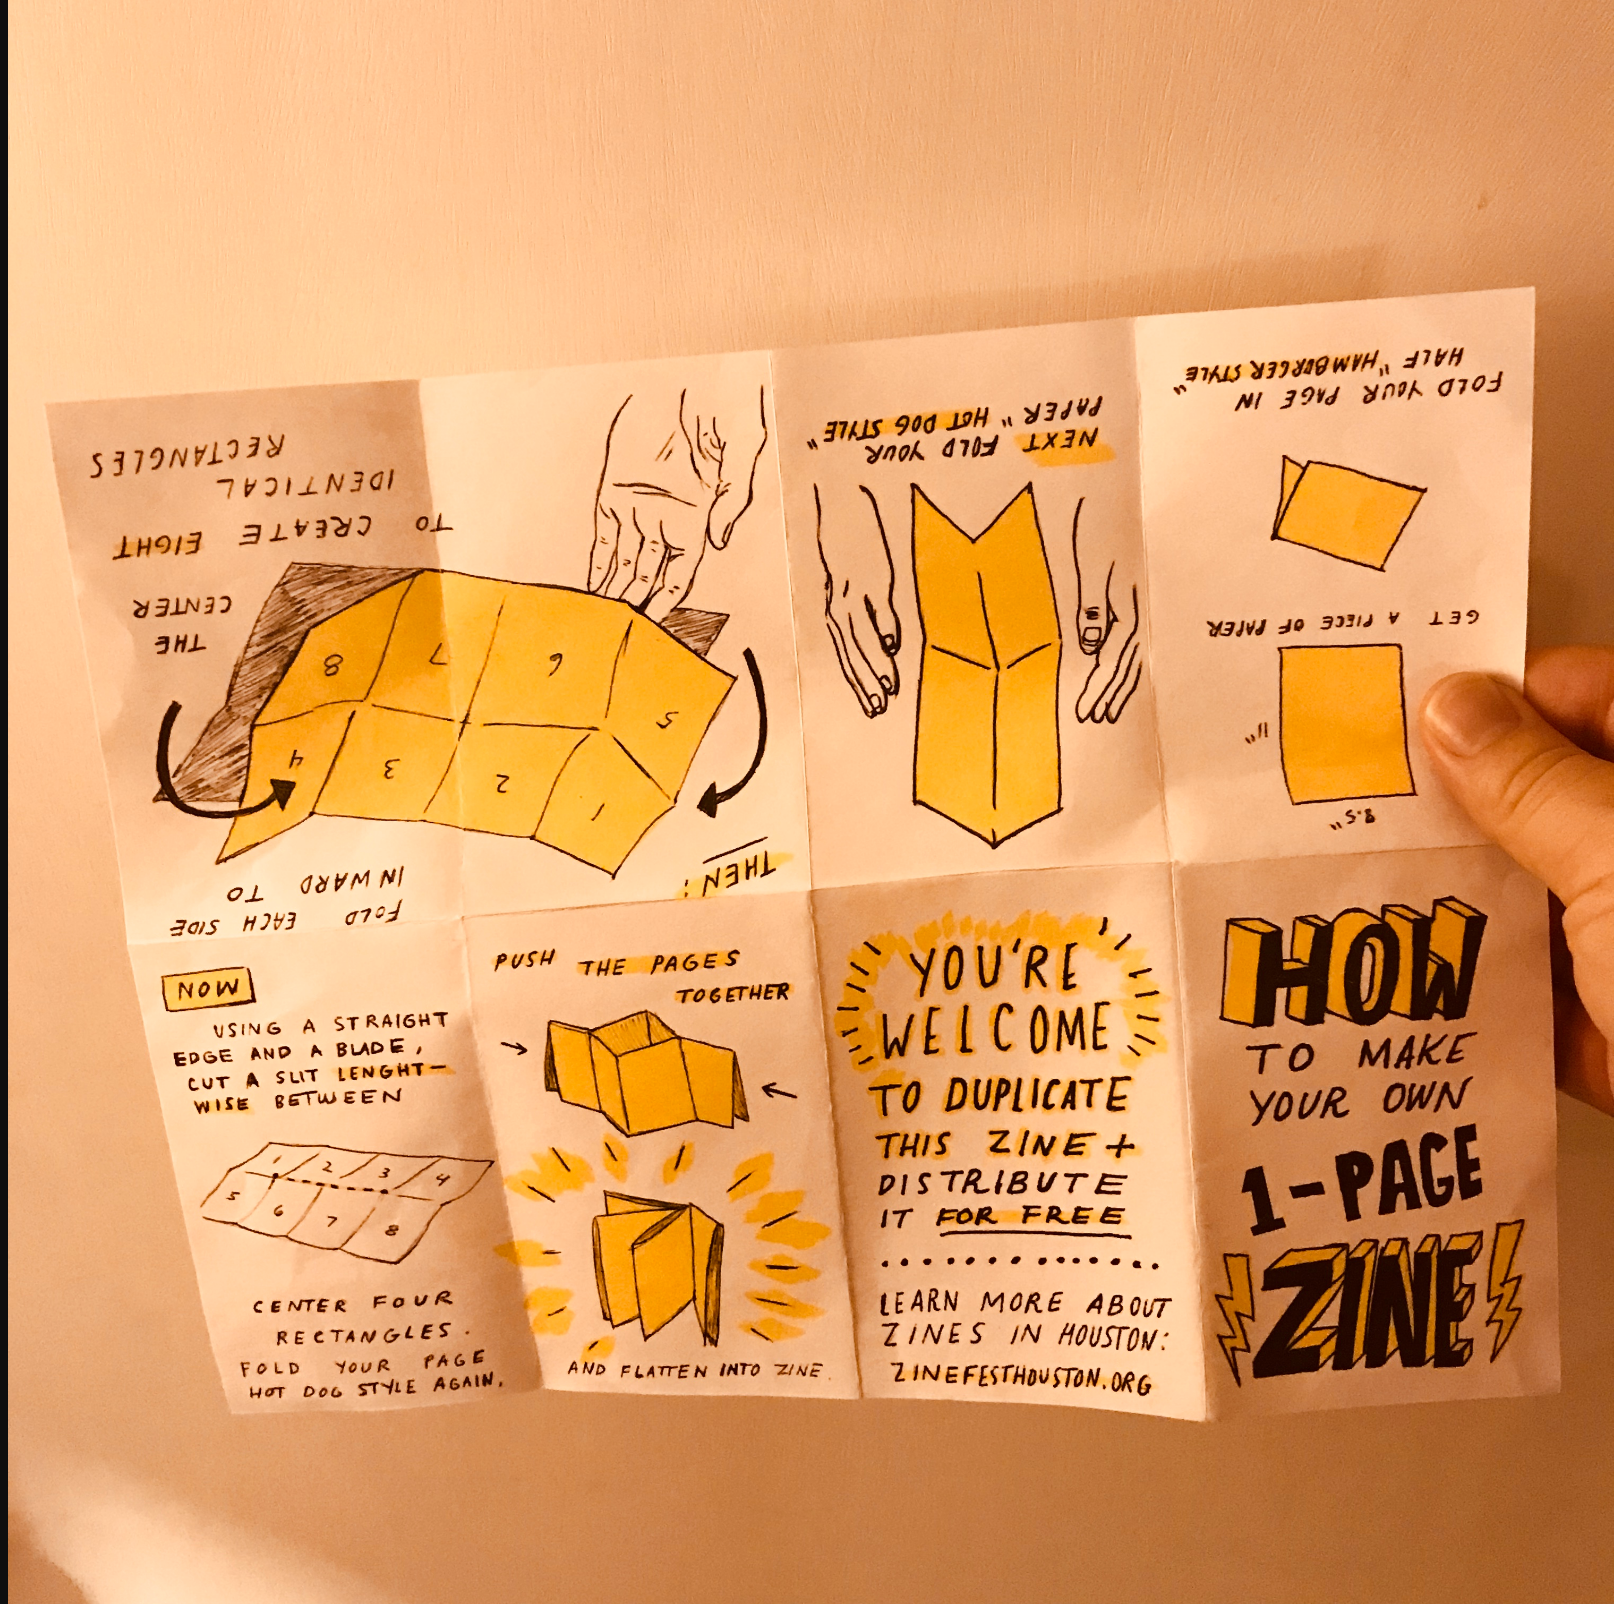 HOW
TO MAKE
YOUR OWN
1-PAGE
ZINE
8.5"
11"
GET A PIECE OF PAPER
FOLD YOUR PAGE IN
HALF "HAMBURGER STYLE"
NEXT FOLD YOUR
PAPER "HOT DOG STYLE"
THEN:
FOLD EACH SIDE
INWARD TO
1
2
3
4
5
6
7
8
THE
CENTER
TO CREATE EIGHT
IDENTICAL
RECTANGLES
NOW
USING A STRAIGHT
EDGE AND A BLADE,
CUT A SLIT LENGHT-
WISE BETWEEN
1 2 3 4
5 6 7 8
CENTER FOUR
RECTANGLES.
FOLD YOUR PAGE
HOT DOG STYLE AGAIN.
PUSH THE PAGES
TOGETHER
AND FLATTEN INTO ZINE.
YOU'RE
WELCOME
TO DUPLICATE
THIS ZINE +
DISTRIBUTE
IT FOR FREE
LEARN MORE ABOUT
ZINES IN HOUSTON:
ZINEFESTHOUSTON.ORG